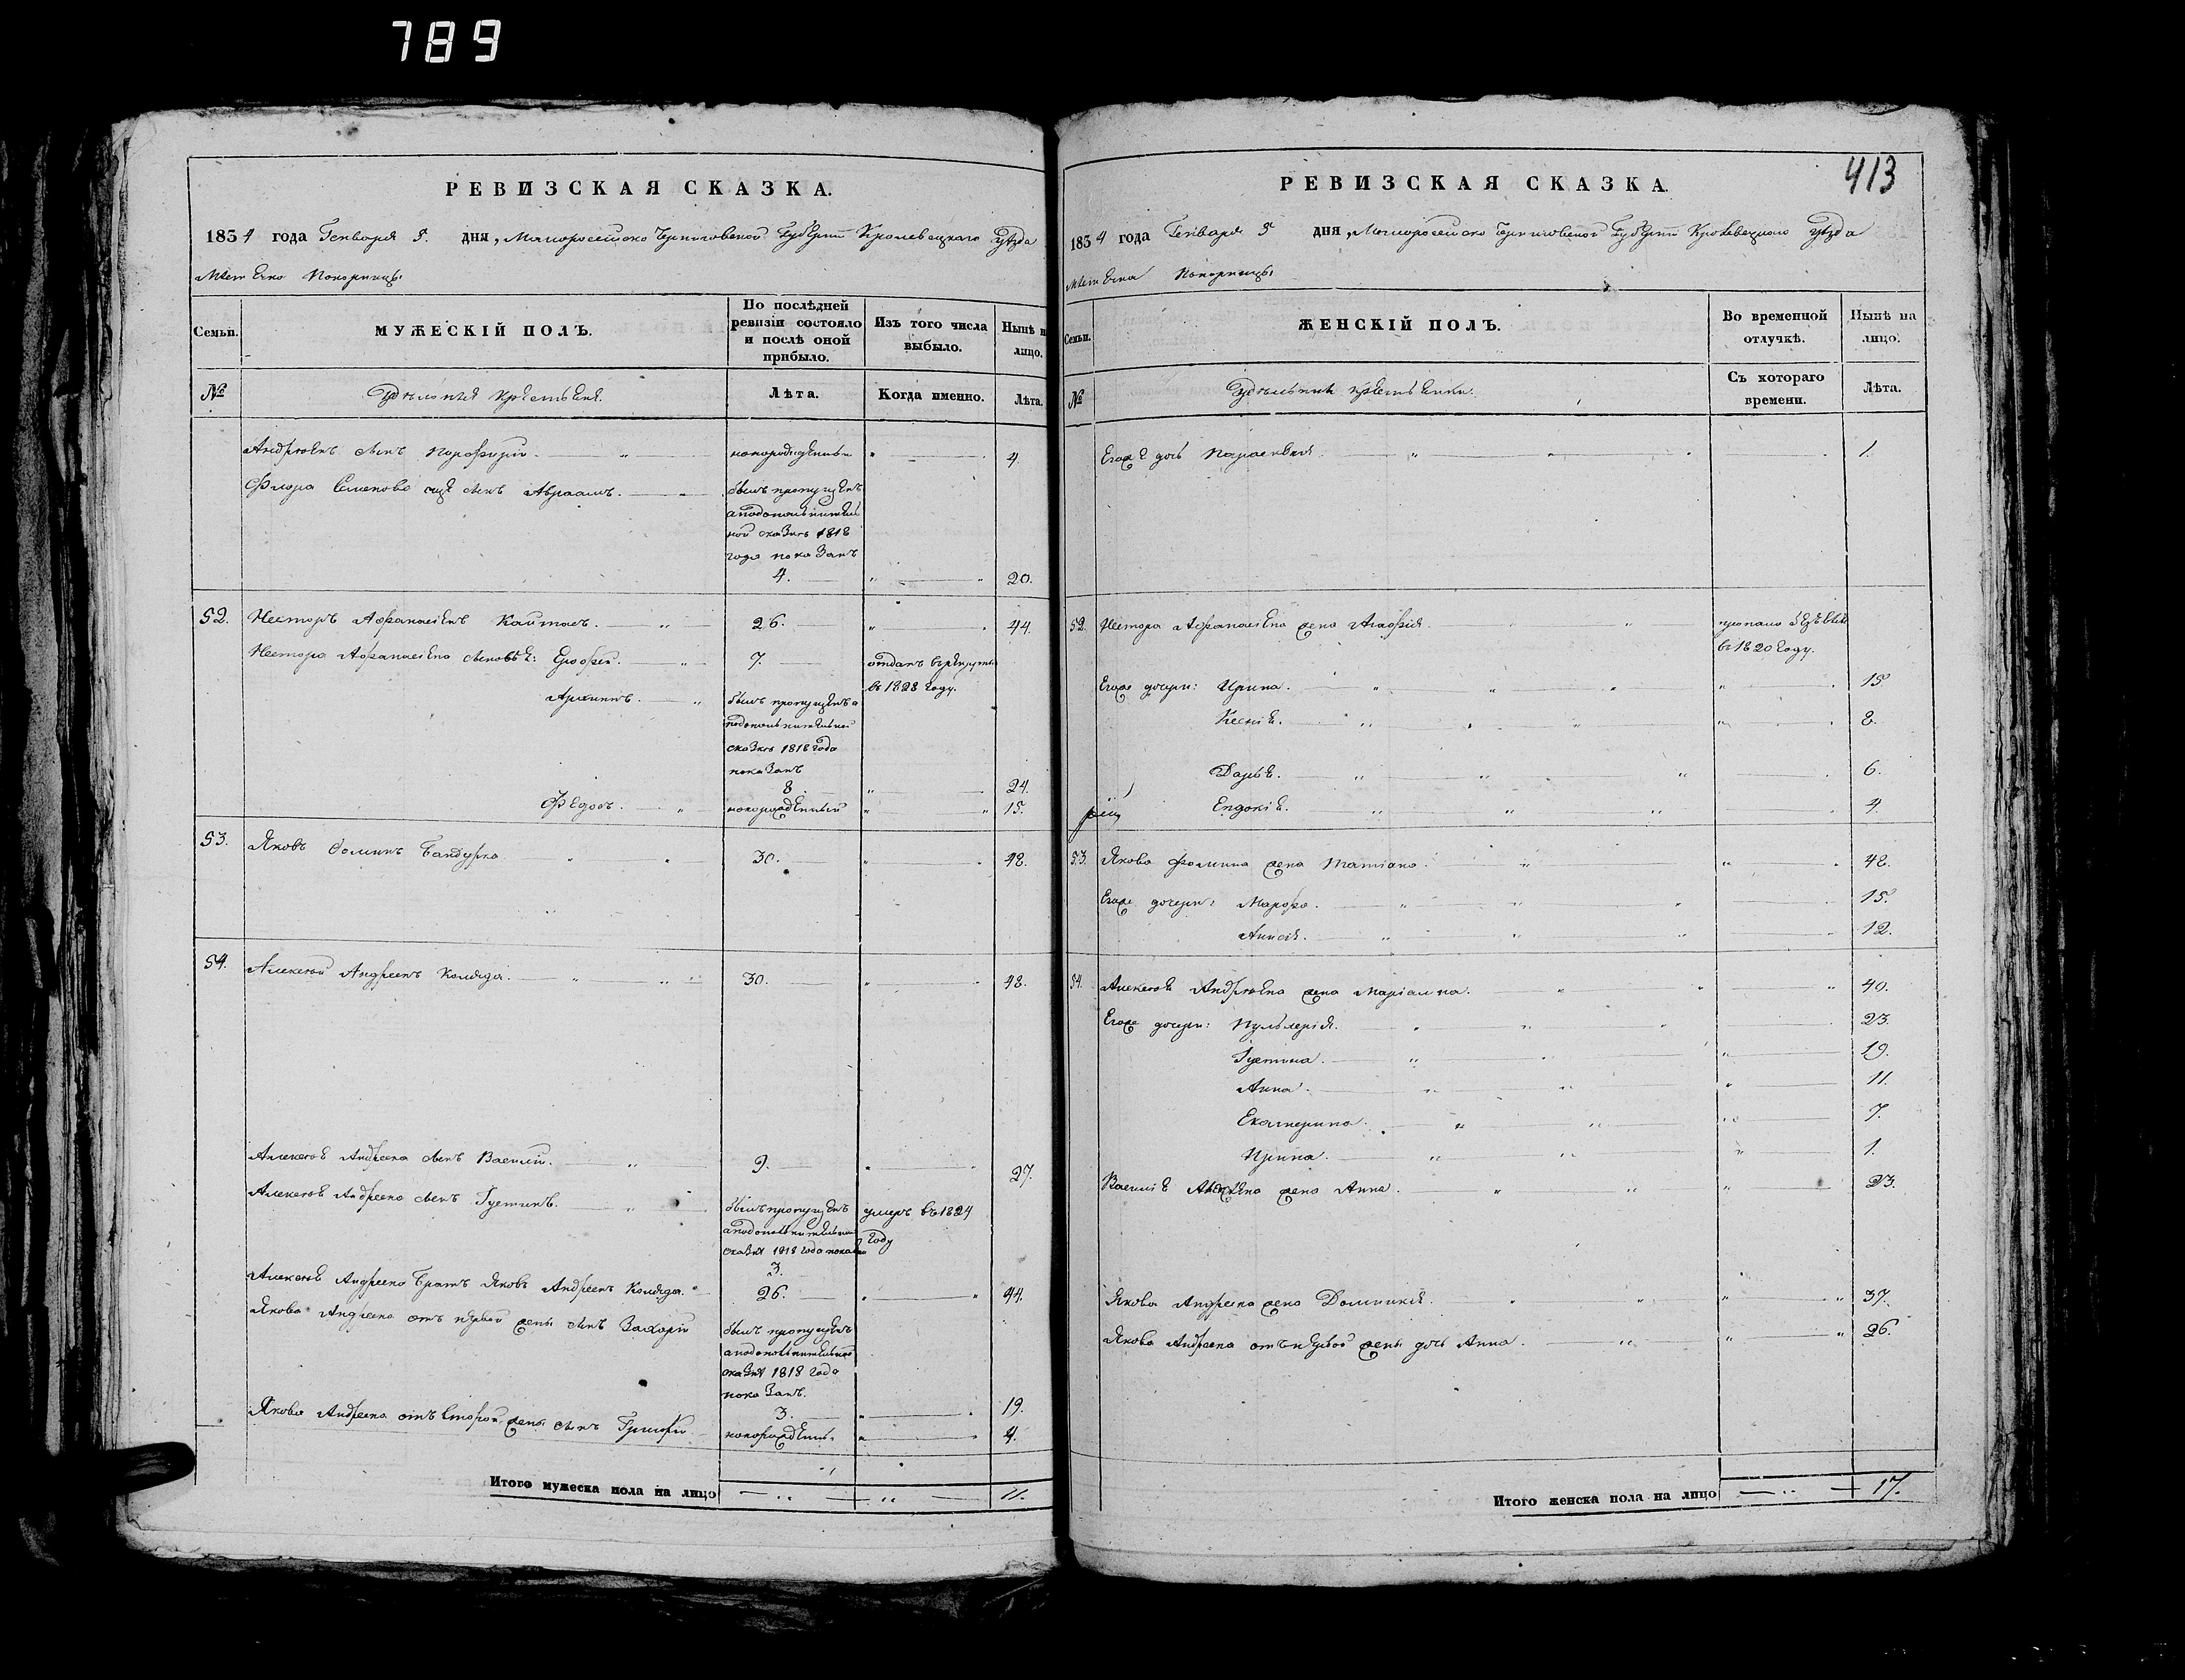 789
РЕВИЗСКАЯ СКАЗКА.
1834 года Генваря 5. дня, Малоросейско Черниговской Губернии Кролевецкаго Уѣзда
Местечко Понорницы
Семьи. МУЖЕСКІЙ ПОЛЪ. По послѣдней ревизіи состояло и послѣ оной прибыло. Изъ того числа выбыло. Нынѣ н лицо.
№ Удѣльныя Крестьяня. Лѣта. Когда именно. Лѣта.
Андреевъ сынъ Порфирій новорожденный 4.
Флора Семенова сынъ Авраамъ. былъ пропущенъ
а по дополнитель
ной сказкѣ 1818
года показанъ
4. 20.
52. Несторъ Афанасіевъ 26. 44.
Нестора Афанасіева сыновья: Ерофей. 7. отданъ въ рекруты
в 1828 году.
Архипъ. былъ пропущенъ а
по дополнительной
сказкѣ 1818 года
показанъ
8 24.
Федосъ. новорожденный 15.
53. Яковъ Фоминъ Бандурка 30. 48.
54. Алексѣй Андреевъ Коляда. 30. 48.
Алексѣя Андреева сынъ Василій. 9. 27.
Алексѣя Андреева сынъ Густинъ. былъ пропущенъ умеръ въ 1824
а по дополнительной году
сказкѣ 1818 года показанъ
3.
Алексѣя Андреева братъ Яковъ Андреевъ Коляда. 26. 44.
Якова Андреева отъ первой жены сынъ Захарій былъ пропущенъ
а по дополнительной
сказкѣ 1818 года
показанъ.
3. 19.
Якова Андреева отъ второй жены сынъ Григорій новорожденный 4.
Итого мужеска пола на лицо 11.
413
РЕВИЗСКАЯ СКАЗКА.
1834 года Генваря 5 дня, Малоросейско Черниговской Губернии Кролевецкаго Уѣзда
Местечка Понорницы
Семьи. ЖЕНСКІЙ ПОЛЪ. Во временной отлучкѣ. Нынѣ на лицо.
№ Удѣльныя крестьянки. Съ котораго времени. Лѣта.
Егоже дочь Параскевия 1.
52. Нестора Афанасіева жена Агафія пропала
в 1820 году.
Егоже дочери: Ирина. 15.
Ксенія. 8.
Дарья. 6.
Евдокія. 4.
53. Якова Фомина жена Татіана 48.
Егоже дочери: Марфа. 15.
Анисія. 12.
54. Алексѣя Андреева жена Маріамна. 40.
Егоже дочери: Пульхерія. 23.
Густина. 19.
Анна. 11.
Екатерина. 7.
Ирина. 1.
Василія Алексѣева жена Анна. 23.
Якова Андреева жена Домникія. 37.
Якова Андреева отъ первой жены дочь Анна. 26.
Итого женска пола на лицо 17.